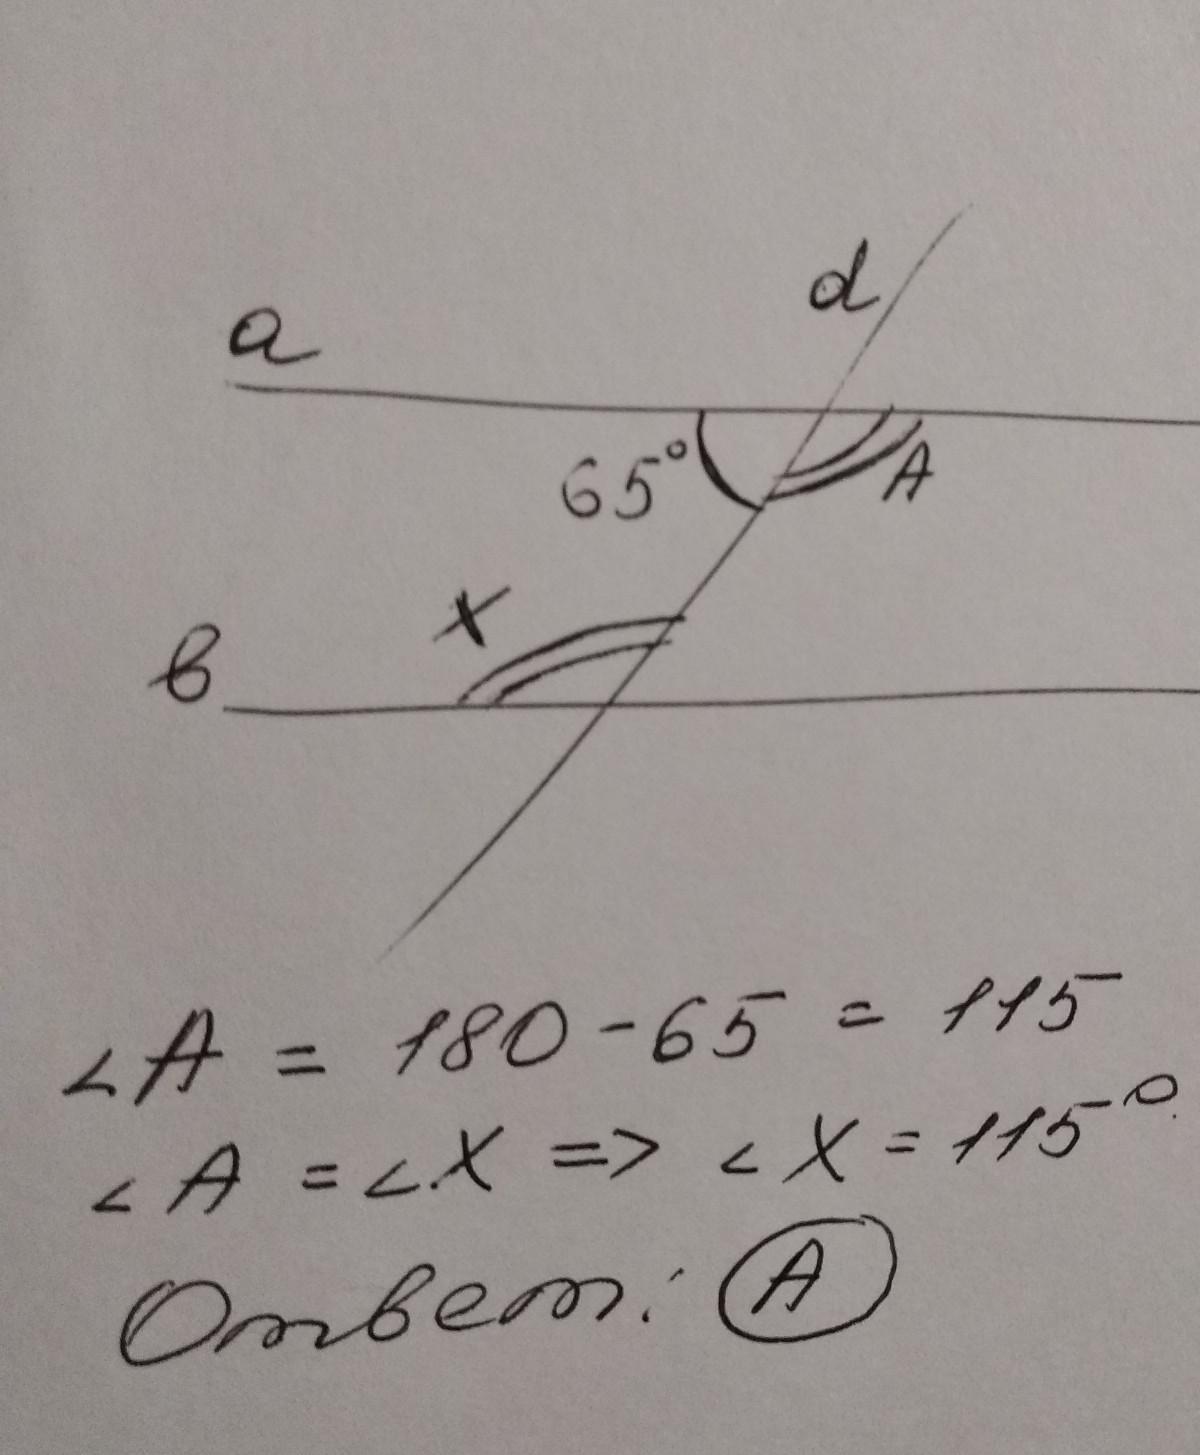 d
a
65° A
x
в
∠A = 180 - 65 = 115
∠A = ∠X => ∠X = 115°
Ответ: A